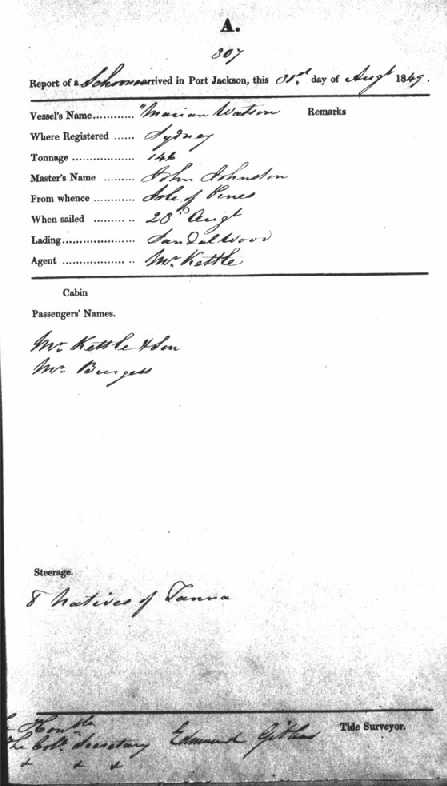 A.
307
Report of a Schooner arrived in Port Jackson, this 31st day of Augt 1849
Vessel's Name............ "Marian Watson Remarks
Where Registered ...... Sydney
Tonnage .................. 146
Master's Name ......... John Johnston
From whence ............ Isle of Pines
When sailed ............. 20th Augt
Lading..................... Sandalwood
Agent ..................... Mr. Kettle
Cabin
Passengers' Names.
Mr. Kettle & Son
Mr. Burgess
Steerage.
8 Natives of Tanna
Honble Tide Surveyor.
The Coll. Secretary Edmund